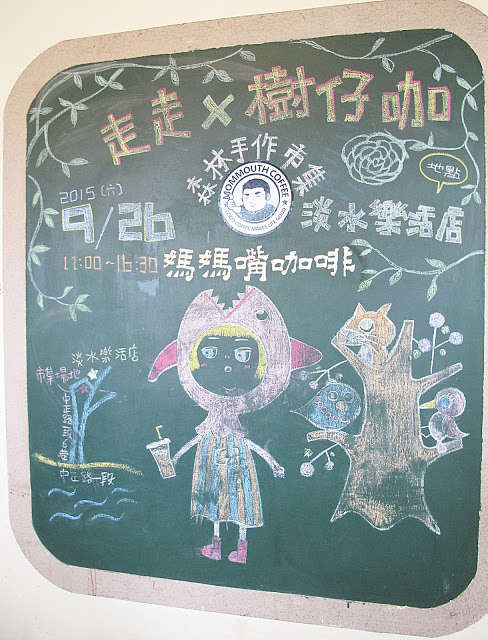 走走×樹仔咖
森林手作市集
MOMMOUTH COFFEE
地點
2015 (六)
9/26
淡水樂活店
11:00~16:30
媽媽嘴咖啡
淡水樂活店
市集場地
中正路一段